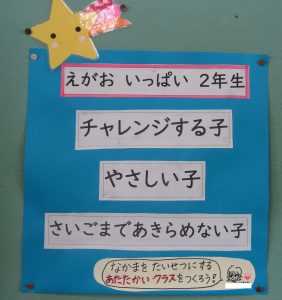 えがお いっぱい 2年生
チャレンジする子
やさしい子
さいごまであきらめない子
なかまを たいせつにする
あたたかい クラスをつくろう!